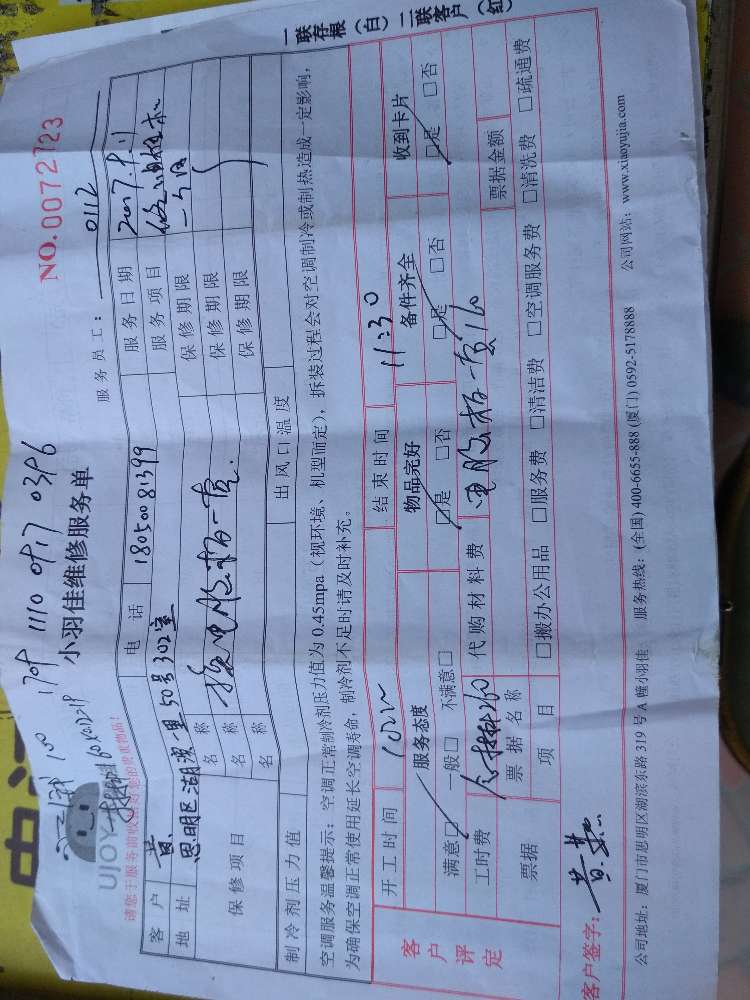 一联存根(白) 二联客户(红)
NO.0072723
1709 1110 0917 0396
小羽佳维修服务单
UJOY
请您于服务前收好您的贵重物品!
服务员工: 0112
客户 黄 电话 18050081399 服务日期
地址 思明区湖滨一里50号302室 服务项目
保修项目 名称 换电脑板一套. 保修期限 一个月
名称 保修期限
名称 保修期限
制冷剂压力值 出风口温度
空调服务温馨提示:空调正常制冷剂压力值为0.45mpa(视环境、机型而定),拆装过程会对空调制冷或制热造成一定影响,
为确保空调正常使用延长空调寿命,制冷剂不足时请及时补充。
客户评定
开工时间 结束时间 11:30
服务态度 物品完好 备件齐全 收到卡片
满意□ 一般□ 不满意□ □是 □否 □是 □否 □是 □否
工时费 代购材料费 电脑板一套160
票据 票据名称 票据金额
项目 □搬办公用品 □服务费 □清洁费 □空调服务费 □清洗费 □疏通费
客户签字: 黄
公司地址:厦门市思明区湖滨东路319号A幢小羽佳 服务热线:(全国)400-6655-888 (厦门)0592-5178888 公司网站:www.xiaoyujia.com